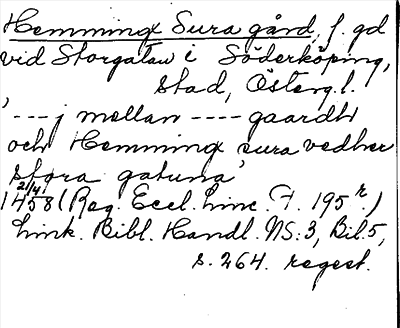 Hemmingx Sura gård, f. gd
vid Storgatan i Söderköping,
stad, Österg. l.
'---j mellan ---- gaardh
och Hemmingx sura vedher
stora gatuna'
21/4 1458 (Reg. Eccl. Linc. F. 195 r.)
Link. Bibl. Handl. NS:3, Bil. 5,
s. 264. regest.